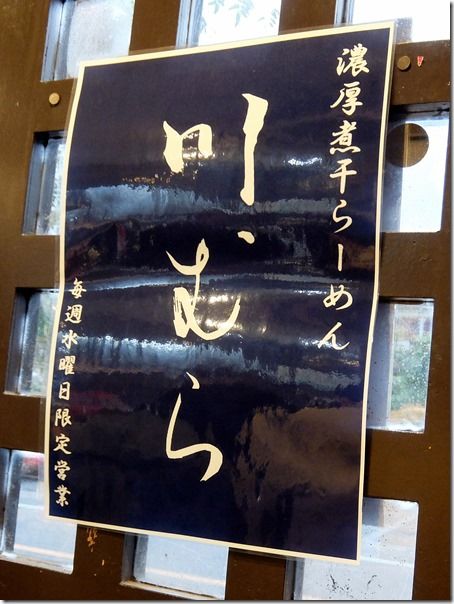 濃厚煮干らーめん
川むら
毎週水曜日限定営業